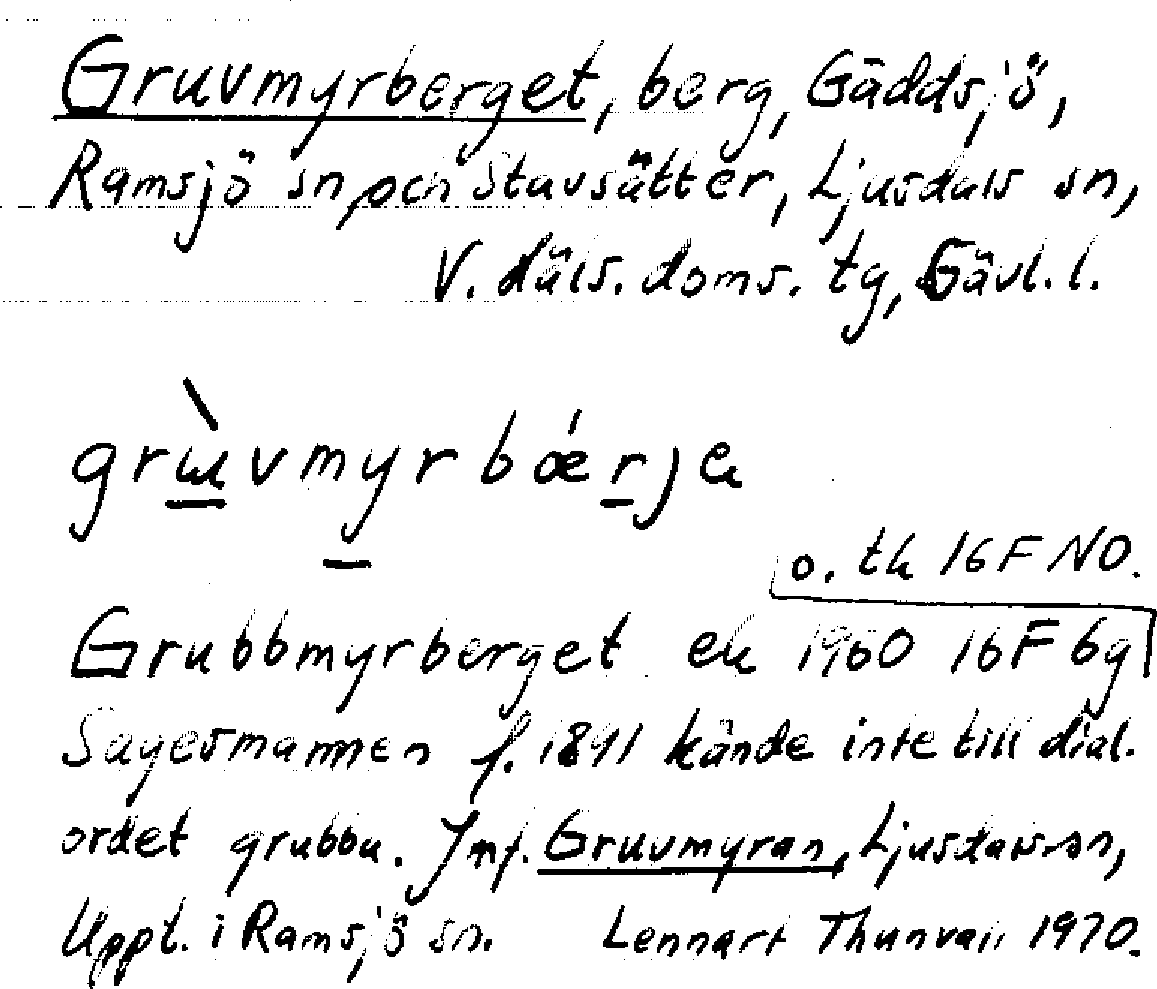 Gruvmyrberget, berg, Gäddsjö,
Ramsjö sn och Stavsätter, Ljusdals sn,
V. Häls. doms. tg, Gävl. l.
grùvmyrbǽrje
o. tk 16F NO.
Grubbmyrberget ek 1960 16F 6g
Sagesmannen f. 1891 kände inte till dial.
ordet grubba. Jmf. Gruvmyran, Ljusdals sn,
Uppt. i Ramsjö sn. Lennart Thunvall 1970.